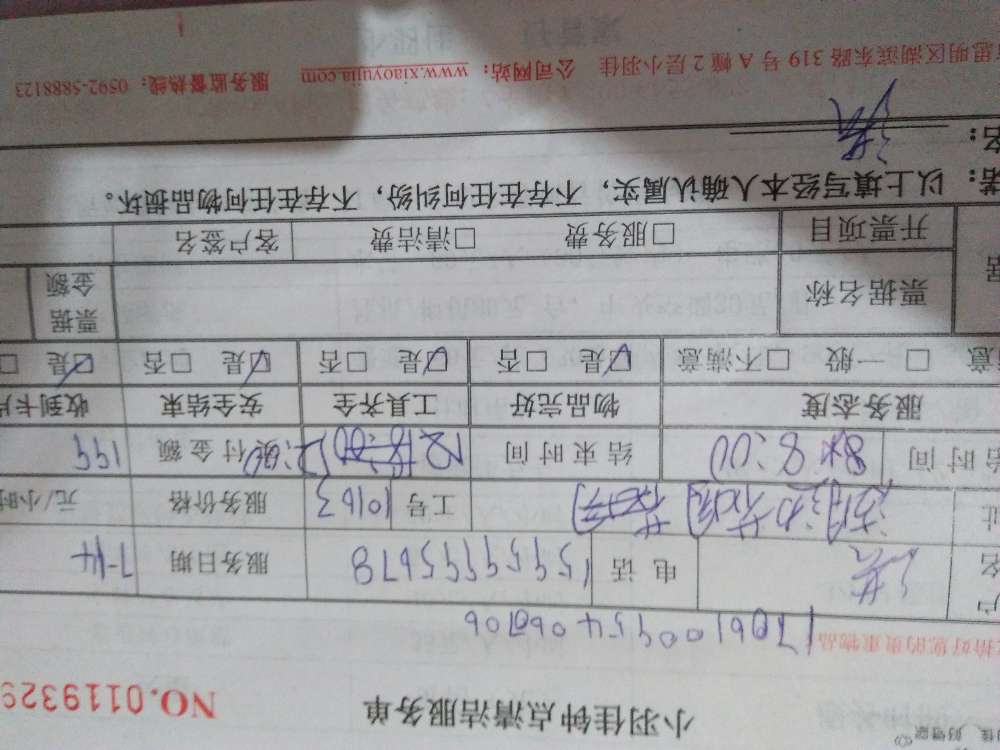 小羽佳钟点清洁服务单
NO.0119329
拾好您的贵重物品
电话 15959995678 服务日期 7-14
工号 10163 服务价格 元/小时
时间 8:00 结束时间 12:00 实付金额 199
服务态度 物品完好 工具齐全 安全结束 收到卡片
意 □一般 □不满意 ☑是 □否 ☑是 □否 ☑是 □否 ☑是 □
票据名称 票据金额
开票项目 □服务费 □清洁费 客户签名
以上填写经本人确认属实，不存在任何纠纷，不存在任何物品损坏。
名：
思明区湖滨东路319号A幢2层小羽佳 公司网站：www.xiaoyujia.com 服务监督热线：0592-5888123